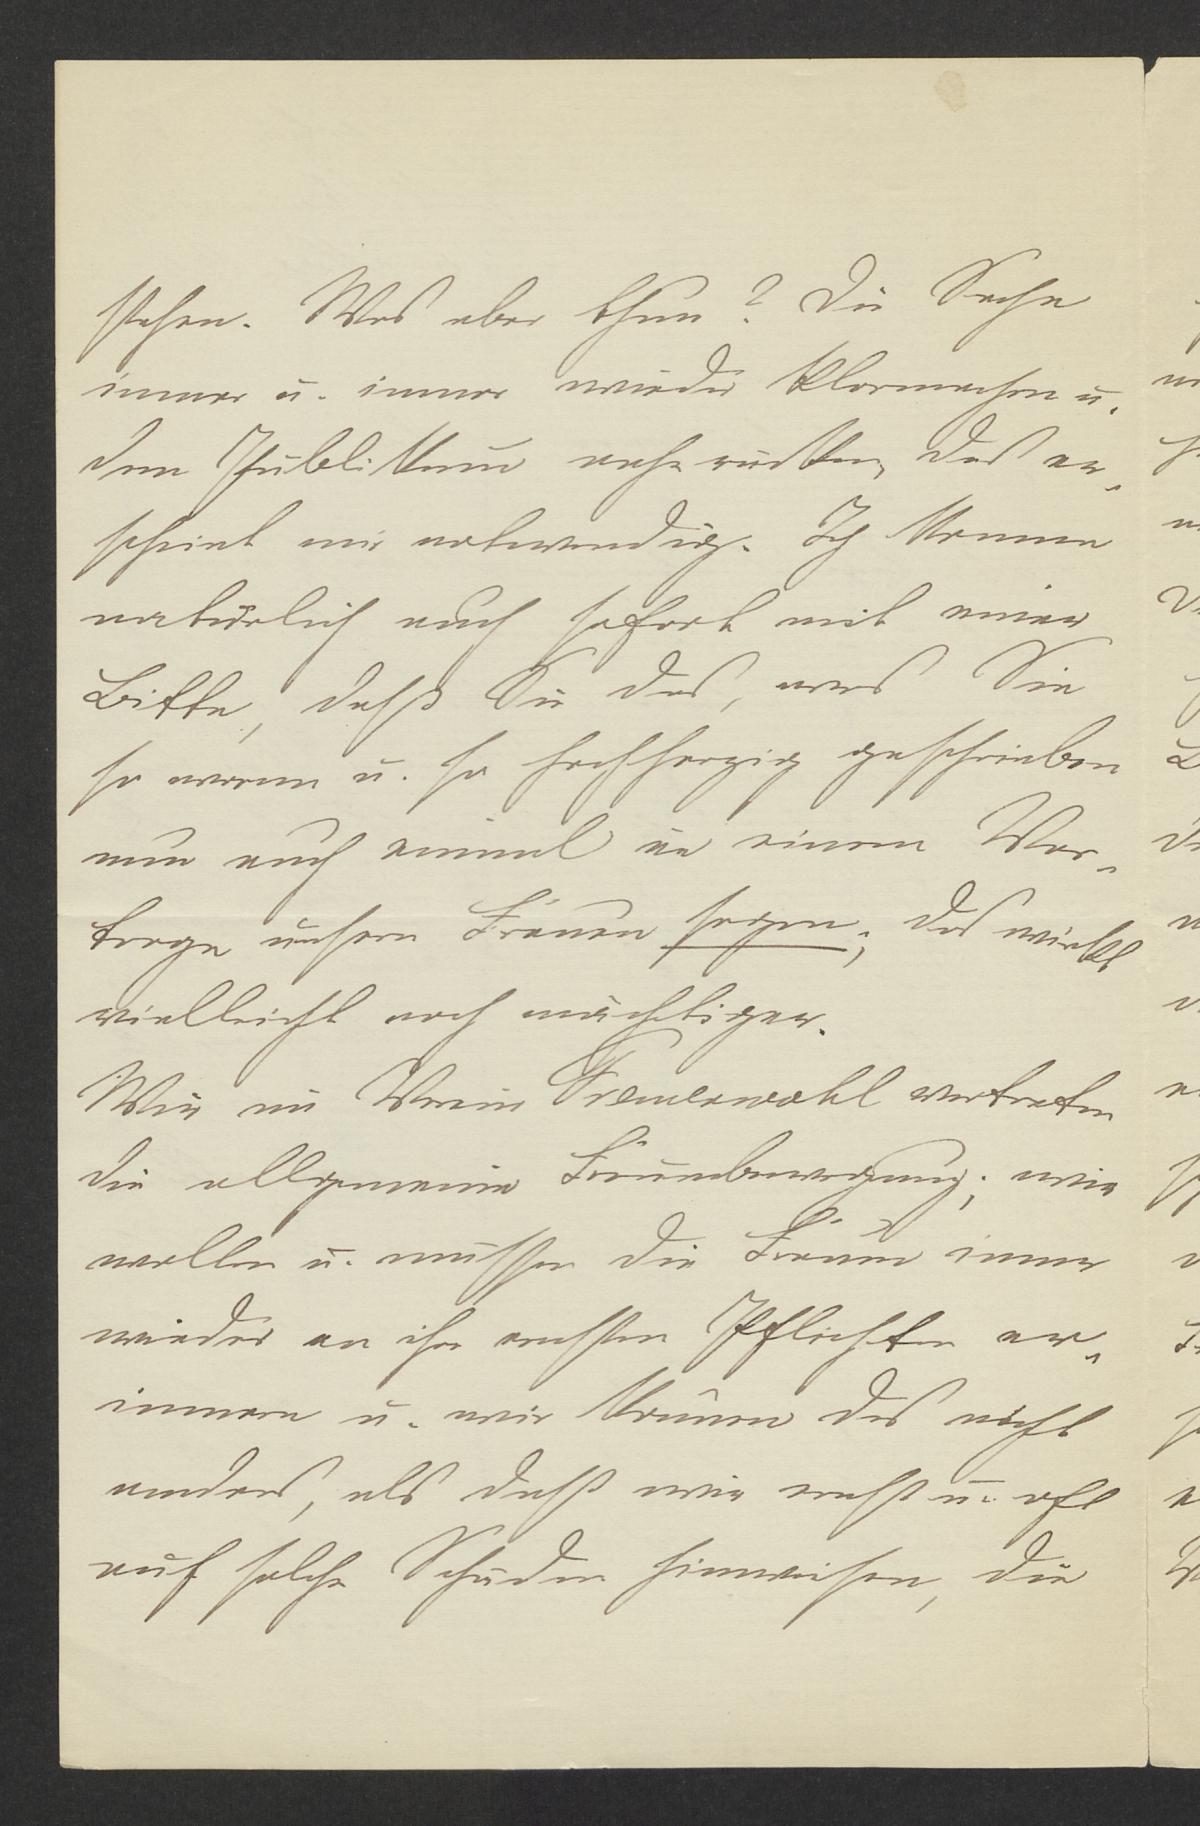 stehen. Was aber thun? Die Sache
immer u. immer wieder klarmachen u.
dem Publikum nahe rücken, das er-
scheint mir notwendig. Ich komme
natürlich auch sofort mit einer
Bitte, daß Sie das, was Sie
so warm u. so hochherzig geschrieben
nun auch einmal in einem Vor-
trage unsern Frauen sagen; das wirkt
vielleicht noch mächtiger.
Wir im Verein Frauenwohl vertreten
die allgemeine Frauenbewegung; wir
wollen u. müssen die Frauen immer
wieder an ihre ernsten Pflichten er-
innern u. wir können das nicht
anders, als daß wir ernst u. oft
auf solche Schäden hinweisen, die